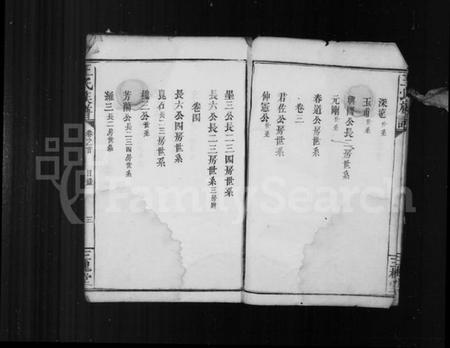 深冕世系
玉甫世系
公長二房世系
元剛世系
春道公房世系
卷三
君佐公房世系
仲憲公世系
墨三公長二三四房世系
長六公長二三房世系三房附
卷四
長六公四房世系
良右長二三房世系
二公世系
芳蘭公長二三四房世系
湘三長二房世系
王氏族譜
卷之首
目錄
三
三槐堂
FamilySearch